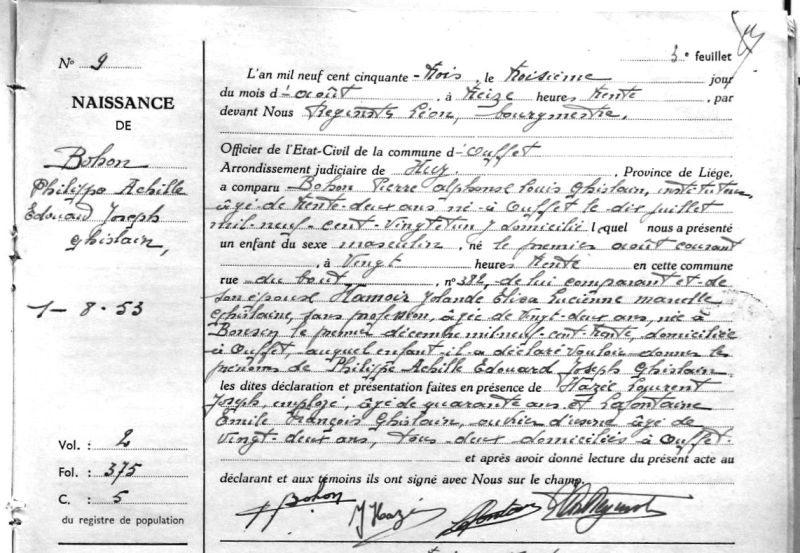 3e feuillet
No 9
NAISSANCE
DE
Bohon
Philippe Achille
Edouard Joseph
Ghislain,
1-8-53
Vol. : 2
Fol. : 375
C. : 5
du registre de population
L'an mil neuf cent cinquante-trois, le troisième jour
du mois d'août, à treize heures trente, par
devant Nous Léon, bourgmestre,
Officier de l'Etat-Civil de la commune d'Ouffet
Arrondissement judiciaire de Huy, Province de Liége,
a comparu Bohon Pierre Alphonse Louis Ghislain, instituteur,
âgé de trente-deux ans né à Ouffet le dix juillet
mil-neuf-cent-vingt et un, y domicilié lequel nous a présenté
un enfant du sexe masculin, né le premier août courant
, à vingt heures trente en cette commune
rue du bout, no 382, de lui comparant et de
son épouse Hamoir Yolande Elisa Lucienne Marcelle
Ghislaine, sans profession, âgée de vingt-deux ans, née à
le premier décembre mil-neuf-cent-trente, domiciliée
à Ouffet, auquel enfant il a déclaré vouloir donner les
prénoms de Philippe Achille Edouard Joseph Ghislain
les dites déclaration et présentation faites en présence de Hazée Laurent
Joseph, employé, âgé de quarante ans et Lafontaine
Emile François Ghislain, ouvrier d'usine âgé de
vingt-deux ans, tous deux domiciliés à Ouffet.
et après avoir donné lecture du présent acte au
déclarant et aux témoins ils ont signé avec Nous sur le champ.
P Bohon J Hazée Lafontaine